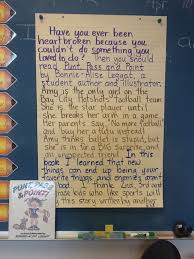 Have you ever been
heartbroken because you
couldn't do something you
loved to do? Then you should
read Punt, Pass and Point
by Bonnie-Alise Leggat, a
student author and illustrator.
Amy is the only girl on the
Bay City Hotshots' football team
She is the star player until
she breaks her arm in a game.
Her parents say, "No more football
and buy her a tutu instead!
Amy thinks ballet is stupid, but
she is in for a BIG surprise and
an unexpected friend. In this
book I learned that new
things can end up being your
favorite things and enemies
good. I think 2nd, 3rd and
kids who like sports will
this story written by another
PUNT, PASS
& POINT!